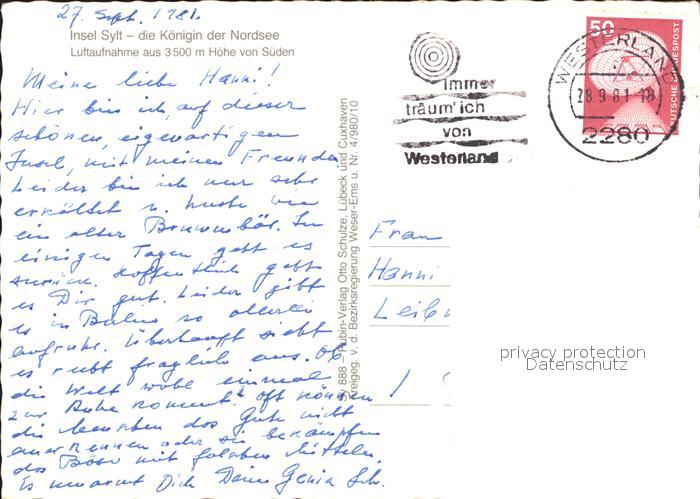 27. Sept. 1981.
Insel Sylt – die Königin der Nordsee
Luftaufnahme aus 3500 m Höhe von Süden
Meine liebe Hanni!
Hier bin ich auf dieser
schönen, eigenartigen
Insel, mit meinen Freunden
Leider bin ich nur sehr
erkältet u. huste wie
ein alter Brummbär. In
einigen Tagen geht es
zurück. Hoffentlich geht
es Dir gut. Leider gibt
es in Berlin so allerlei
Aufruhr. Überhaupt sieht
es recht fraglich aus. Ob
die Welt wohl einmal
zur Ruhe kommt? Oft können
die Menschen das Gute nicht
anerkennen oder sie bekämpfen
das Böse mit falschen Mitteln.
Es umarmt Dich Deine Genia Sch.
888 – Rubin-Verlag Otto Schulze, Lübeck und Cuxhaven
Freigeg. v. d. Bezirksregierung Weser-Ems u. Nr. 4/980/10
Immer
träum' ich
von
Westerland
50
DEUTSCHE BUNDESPOST
WESTERLAND
28.9.81-18
2280
Frau
Hanni
privacy protection
Datenschutz